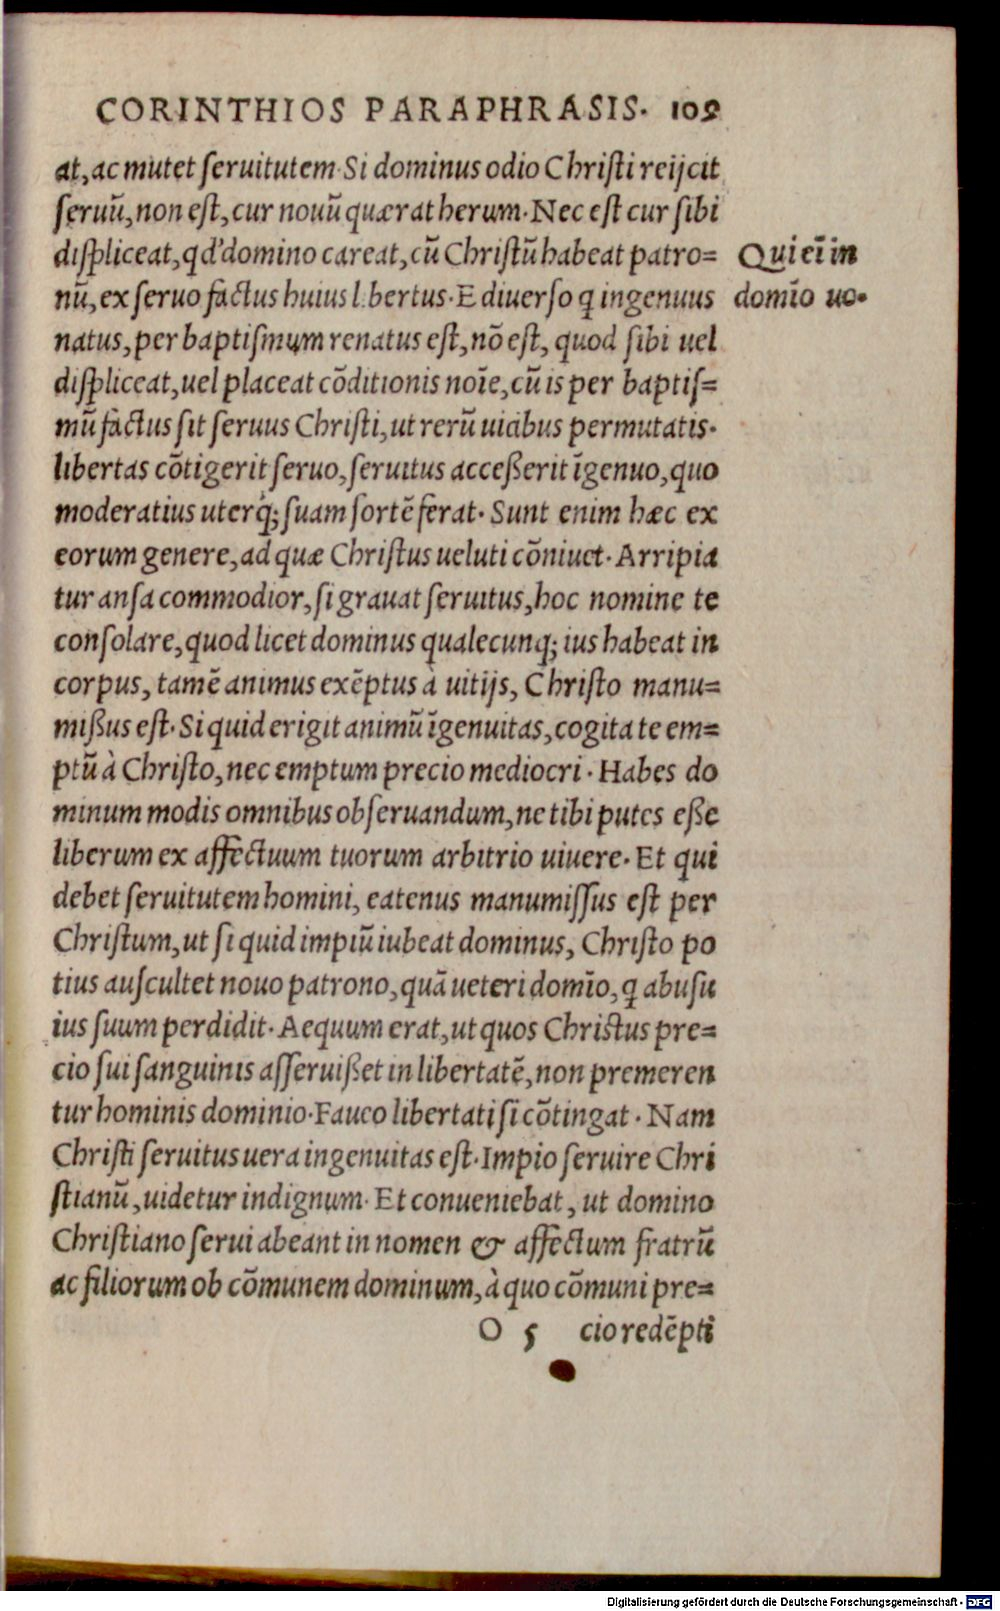 CORINTHIOS PARAPHRASIS. 109
at, ac mutet seruitutem. Si dominus odio Christi reijcit
seruũ, non est, cur nouũ quærat herum. Nec est cur sibi
displiceat, qd' domino careat, cũ Christũ habeat patro=
nũ, ex seruo factus huius libertus. E diuerso q ingenuus
natus, per baptismum renatus est, nõ est, quod sibi uel
displiceat, uel placeat cõditionis noĩe, cũ is per baptis=
mũ factus sit seruus Christi, ut rerũ uicibus permutatis.
libertas cõtigerit seruo, seruitus acceßerit ĩgenuo, quo
moderatius uterq; suam sortẽ ferat. Sunt enim hæc ex
eorum genere, ad quæ Christus ueluti cõniuet. Arripia
tur ansa commodior, si grauat seruitus, hoc nomine te
consolare, quod licet dominus qualecunq; ius habeat in
corpus, tamẽ animus exẽptus à uitijs, Christo manu=
mißus est. Si quid erigit animũ ĩgenuitas, cogita te em=
ptũ à Christo, nec emptum precio mediocri. Habes do
minum modis omnibus obseruandum, ne tibi putes eße
liberum ex affectuum tuorum arbitrio uiuere. Et qui
debet seruitutem homini, eatenus manumissus est per
Christum, ut si quid impiũ iubeat dominus, Christo po
tius auscultet nouo patrono, quã ueteri domĩo, q abusu
ius suum perdidit. Aequum erat, ut quos Christus pre=
cio sui sanguinis asseruißet in libertatẽ, non premeren
tur hominis dominio. Faueo libertati si cõtingat. Nam
Christi seruitus uera ingenuitas est. Impio seruire Chri
stianũ, uidetur indignum. Et conueniebat, ut domino
Christiano serui abeant in nomen & affectum fratrũ
ac filiorum ob cõmunem dominum, à quo cõmuni pre=
O 5 cio redẽpti
Qui eĩ in
domĩo uo.
Digitalisierung gefördert durch die Deutsche Forschungsgemeinschaft - DFG